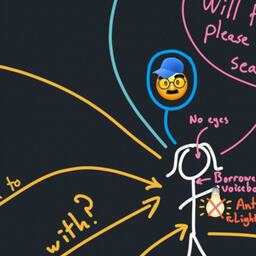 Will
please
sea
No eyes
Borrowe
voicebo
Ant
Light
to
with?